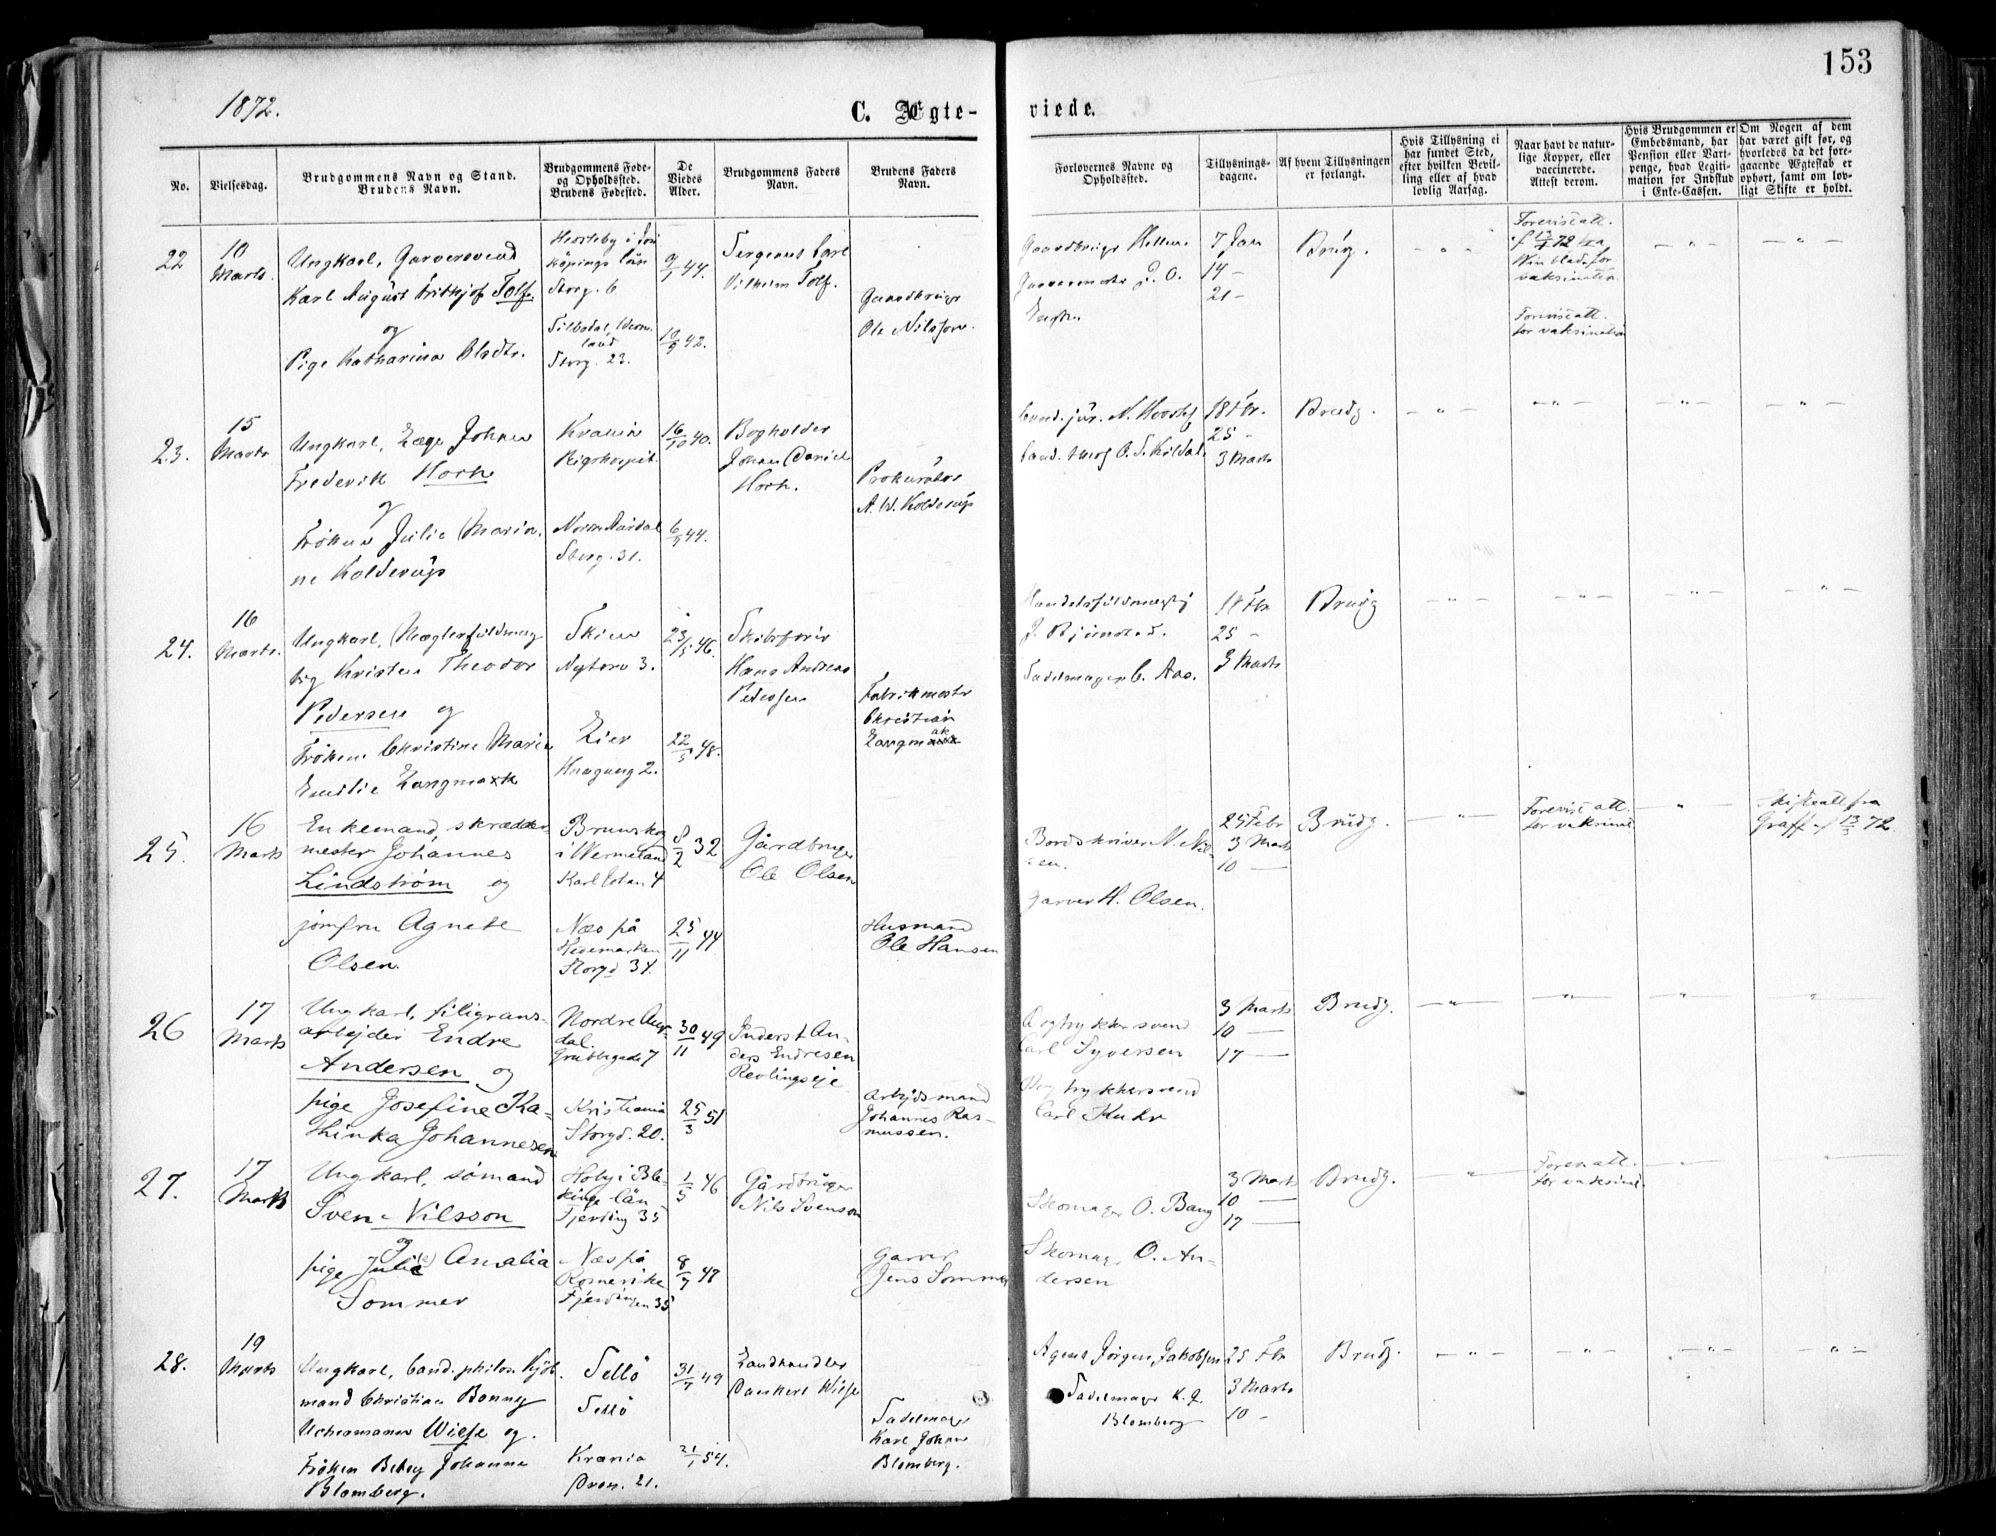 153
1872.
C. Ægte- viede.
No.
Vielsesdag.
Brudgommens Navn og Stand.
Brudens Navn.
Brudgommens Føde-
og Opholdssted.
Brudens Fødested.
De
Viedes
Alder.
Brudgommens Faders
Navn.
Brudens Faders
Navn.
Forlovernes Navne og
Opholdssted.
Tillysnings-
dagene.
Af hvem Tillysningen
er forlangt.
Hvis Tillysning ei
har fundet Sted,
efter hvilken Bevil-
ling eller af hvad
lovlig Aarsag.
Naar havt de natur-
lige Kopper, eller
vaccinerede.
Attest derom.
Hvis Brudgommen er
Embedsmand, har
Pension eller Vart-
penge, hvad Legiti-
mation for Indskud
i Enke-Cassen.
Om Nogen af dem
har været gift før, og
hvorledes da det fore-
gaaende Ægteskab er
ophørt, samt om lov-
ligt Skifte er holdt.
22
10
Marts
Ungkarl, Garversvend
Karl August Frithjof Tolf
og
Pige Katharina Olsdtr.
köpings län
Storg. 6
Storg. 23.
9/1 44.
10/9 42.
Carl
Vilhelm Tolf.
Gaardbruger
Ole Nilsson.
7 Jan
14 -
21 -
Brudg.
- " -
Forevist att.
for
vaksination
Forevist att.
for vaksination
- " -
- " -
23.
15
Marts
Ungkarl, Læge Johan
Frederik Horn
og
Frøken Julie Maria-
ne Kolderup
Krania
Rigshospit.
Nordre Aurdal
Storg. 31.
16/10 40.
6/9 44.
Bogholder
Johan Daniel
Horn.
Prokurator
A. W. Kolderup
Cand. jur. N.
Cand. O. S. Kildal
18 Fbr.
25 -
3 Marts
Brudg.
- " -
- " -
- " -
- " -
24.
16
Marts.
Ungkarl, Mæglerfuldmæg-
tig Kristen Theodor
Pedersen og
Frøken Christine Marie
Emilie Langmaak
Skien
Nytorv 3.
Eier
2.
23/5 46.
22/5 48.
Skibsfører
Hans Andreas
Pedersen
Fabrikmester
Christian
Langmaak
Handelsfuldmægtig
J. Bjørnstad.
Sadelmager C. Aas.
18 Fbr
25 -
3 Marts
Brudg
- " -
- " -
- " -
- " -
25.
16
Marts
Enkemand, skrædder-
mester Johannes
Lindstrøm og
jomfru Agnete
Olsen.
Brunskog
i Wermeland
Karl Johan 4
Næs på
Hedemarken
Storgd 34.
8/2 32
25/11 44
Gårdbruger
Ole Olsen
Husmand
Ole Hansen
Bordskriver N. Nil-
sen.
Garver H. Olsen.
25 Febr
3 Marts
10 -
Brudg.
- " -
Forevist att.
for vaksinat.
- " -
Skifteatt fra
Graff af 13/3 72.
26
17
Marts
Ungkarl, filigrans-
arbejder Endre
Andersen og
pige Josefine Ka-
thinka Johannesen
Nordre Aur-
dal.
Grubbegade 7
Kristiania
Storgd. 20.
30/11 49
25/3 51
Inderst An-
ders Endresen
Revlingseje
Arbejdsmand
Johannes Ras-
mussen.
Bogtrykkersvend
Carl Syversen
Bogtrykkersvend
Carl Kuhn
3 Marts
10 -
17 -
Brudg.
- " -
"
"
"
27.
17
Marts
Ungkarl, sømand
Sven Nilsson
og
pige Julie Amalia
Sommer
Hoby i Ble-
kinge län
Fjerding 35
Næs på
Romerike
Fjerdingen 35
1/5 46
8/7 47
Gårdbruger
Nils Svenson
Garver
Jens Sommer
Skomager O. Bang
Skomag. O. An-
dersen
3 Marts
10 -
17 -
Brudg.
"
Forev. att.
for vaksinat.
"
"
28.
19
Marts
Ungkarl, Cand. philos. Kjøb-
mand Christian Bonnevy
Uchermann Wiese og.
Frøken Betsy Johanne
Blomberg.
Sellö
Sellö
Krania
Dron. 21.
31/7 49
21/1 54.
Landhandler
Dankert Wiese
Sadelmager
Karl Johan
Blomberg.
Agent Jörgen Jakobsen
Sadelmager K. J.
Blomberg
25 Fbr
3 Marts
10 -
Brudg.
- " -
- " -
- " -
- " -